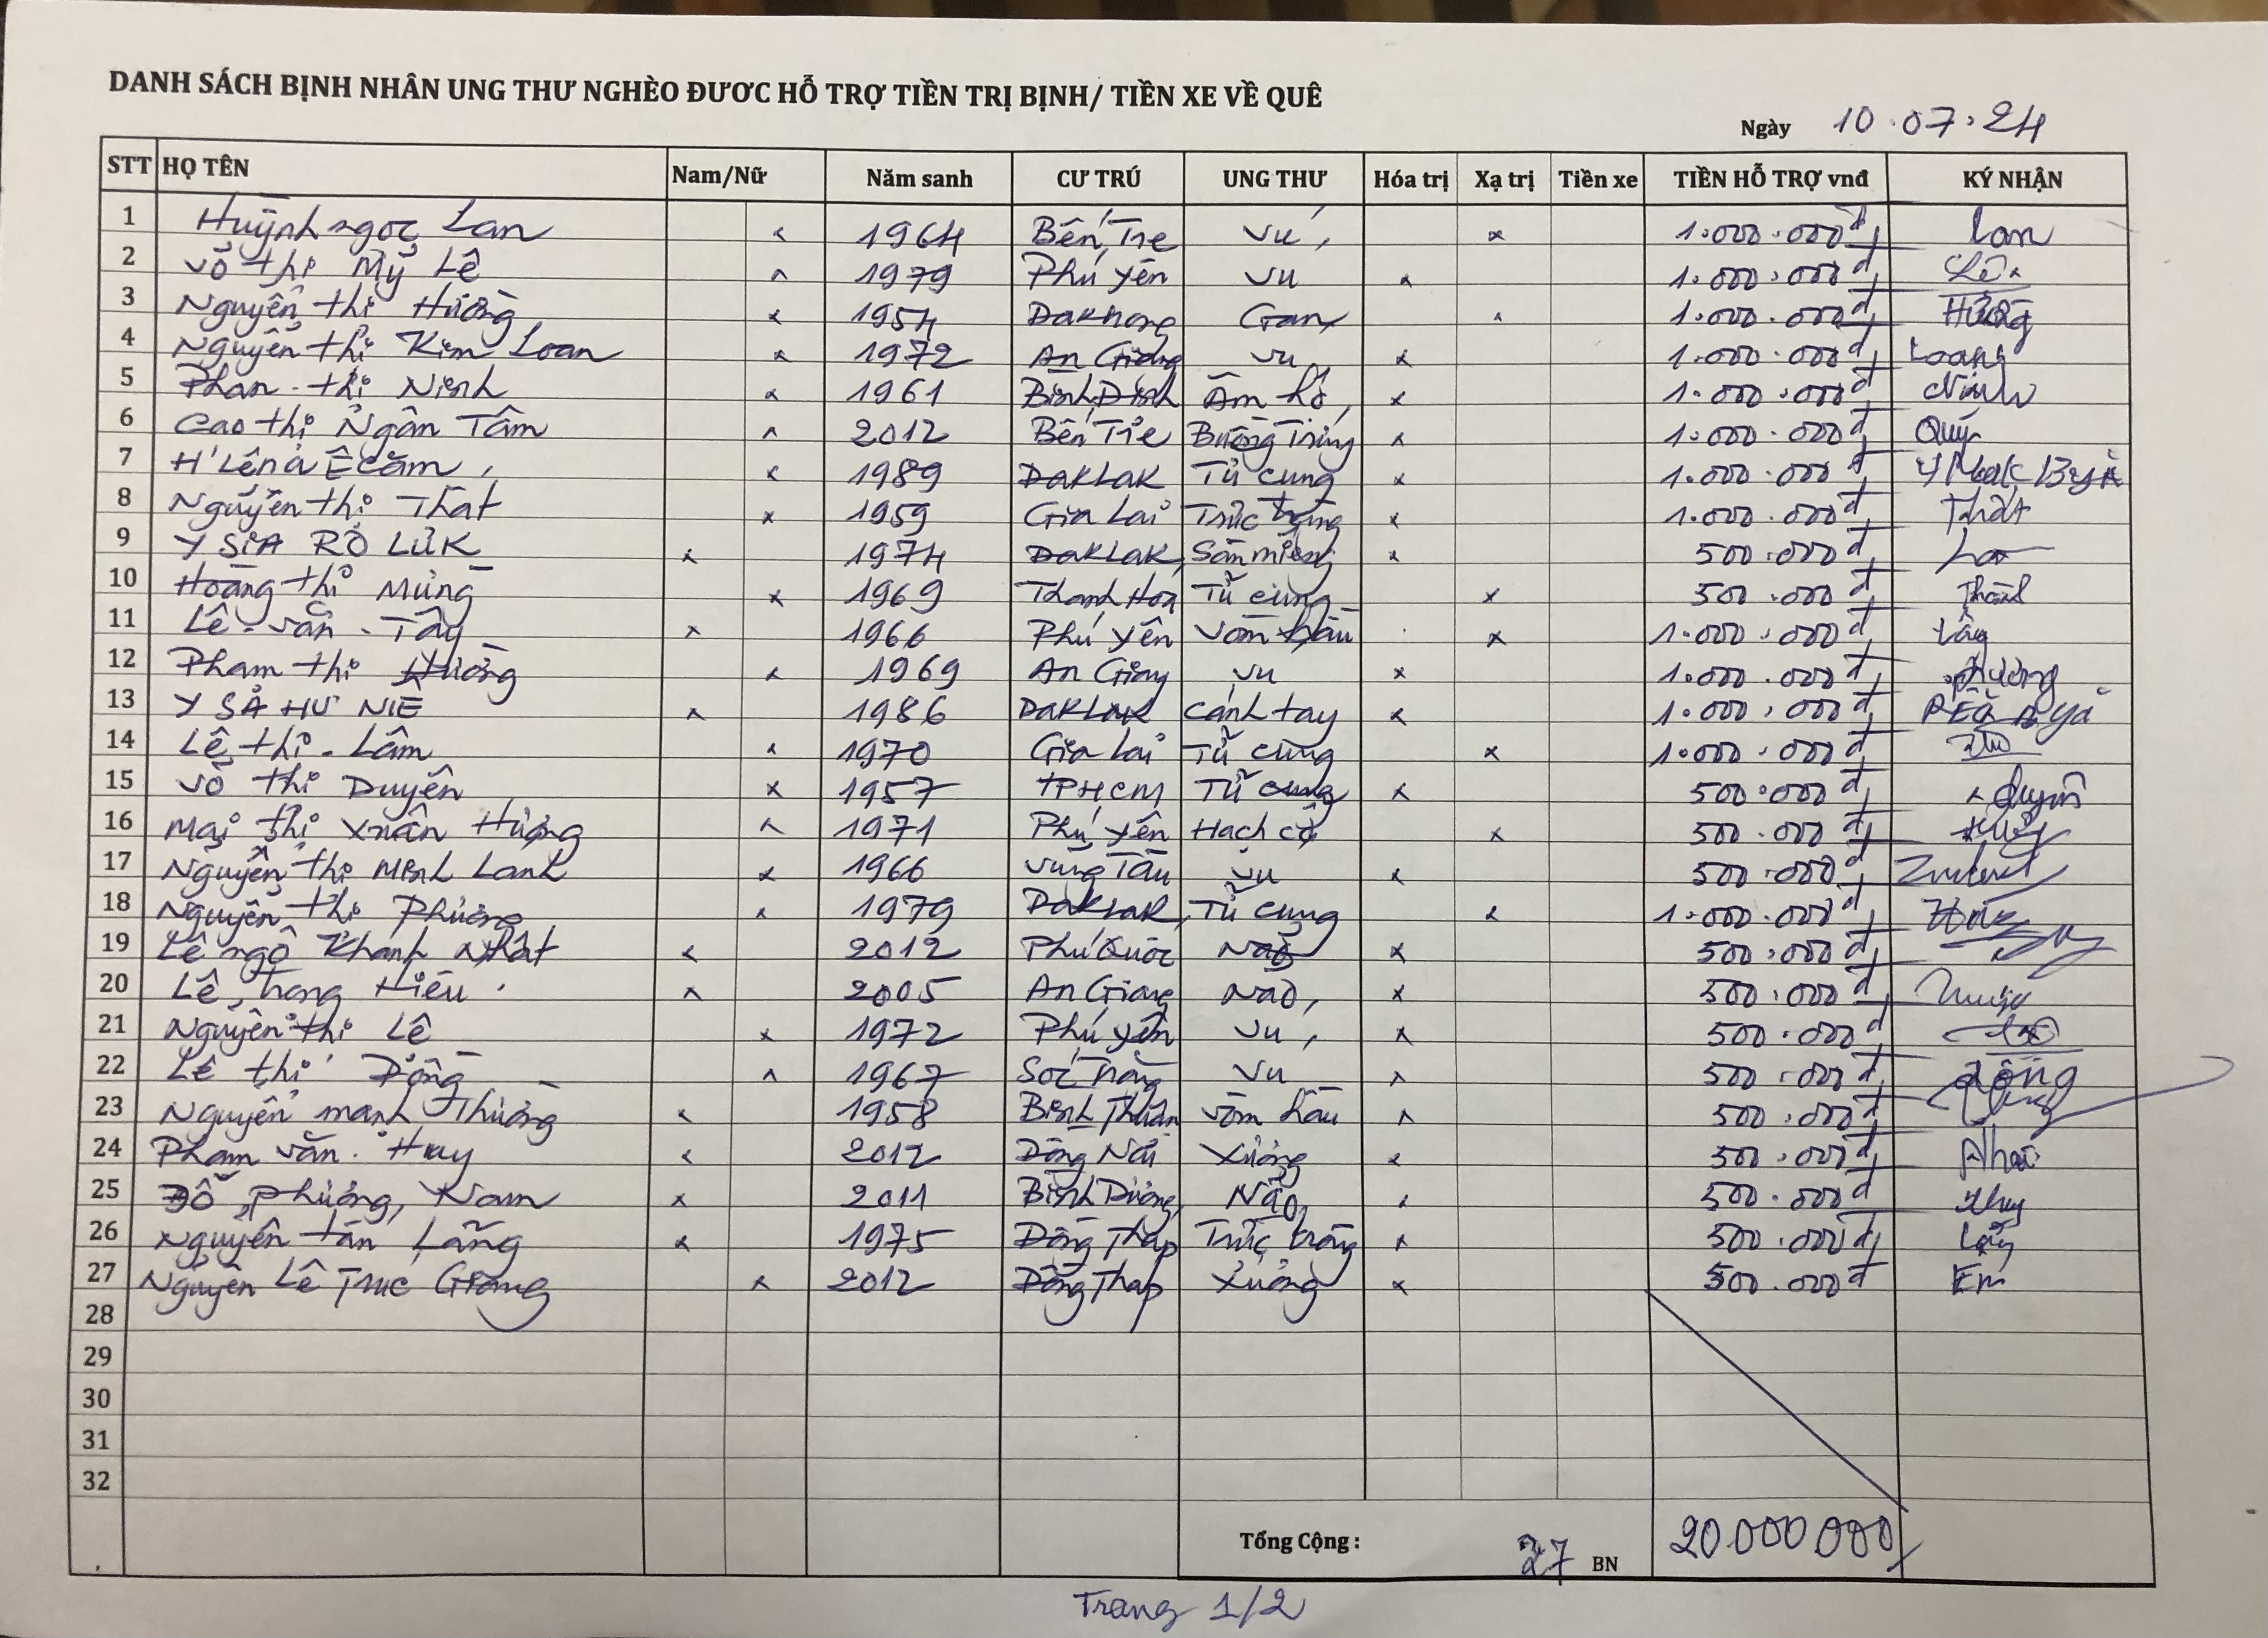 DANH SÁCH BỊNH NHÂN UNG THƯ NGHÈO ĐƯƠC HỖ TRỢ TIỀN TRỊ BỊNH/ TIỀN XE VỀ QUÊ
Ngày 10.07.24
STT HỌ TÊN Nam/Nữ Năm sanh CƯ TRÚ UNG THƯ Hóa trị Xạ trị Tiền xe TIỀN HỖ TRỢ vnđ KÝ NHẬN
1 Huỳnh ngọc Lan x 1964 Bến Tre Vú x 1.000.000đ Lan
2 Võ thị Mỹ Lê x 1979 Phú Yên Vu x 1.000.000đ Lê
3 Nguyễn thị Hường x 1954 Daknong Gan x 1.000.000đ Hường
4 Nguyễn thị Kim Loan x 1972 An Giang Vu x 1.000.000đ Loan
5 Phan thị Ninh x 1961 Bình Định Âm hộ x 1.000.000đ Ninh
6 Cao thị Ngân Tâm x 2012 Bến Tre Buồng Trứng x 1.000.000đ Quý
7 H'Lêna Êcăm x 1989 DakLak Tử cung x 1.000.000đ
8 Nguyễn thị That x 1959 Gia Lai Trực tràng x 1.000.000đ Thật
9 Y SIA RỐ LỨK x 1974 DakLak Sàn miệng x 500.000đ
10 Hoàng thị Mừng x 1969 Thanh Hoa Tử cung x 500.000đ
11 Lê văn Tây x 1966 Phú Yên Vòm hầu x 1.000.000đ Tây
12 Pham thị Hường x 1969 An Giang Vu x 1.000.000đ Hường
13 Y SẢ HƯ NIÊ x 1986 DakLak Cánh tay x 1.000.000đ
14 Lê thị Lâm x 1970 Gia Lai Tử cung x 1.000.000đ
15 Võ thị Duyên x 1957 TPHCM Tử cung x 500.000đ duyên
16 Mai thị Xuân Hương x 1971 Phú Yên Hạch cổ x 500.000đ
17 Nguyễn thị Minh Lanh x 1966 Vũng Tàu Vu x 500.000đ
18 Nguyễn thị Phương x 1979 DakLak Tử cung x 1.000.000đ
19 Lê ngô Khanh Nhật x 2012 Phú Quốc Não x 500.000đ
20 Lê trong Hiếu x 2005 An Giang Não x 500.000đ
21 Nguyễn thị Lê x 1972 Phú Yên Vu x 500.000đ
22 Lê thị Đông x 1967 Sóc Trăng Vu x 500.000đ đông
23 Nguyễn manh Thường x 1958 Bình Thuân Vòm hầu x 500.000đ
24 Pham văn Huy x 2012 Đồng Nai Xương x 500.000đ
25 Đỗ phương Nam x 2011 Bình Dương Não x 500.000đ
26 Nguyễn tấn Lãng x 1975 Đồng Thap Trực tràng x 500.000đ Lãng
27 Nguyễn Lê Truc Giang x 2012 Đồng Thap Xương x 500.000đ Em
28
29
30
31
32
Tổng Cộng : 27 BN 20.000.000
Trang 1/2